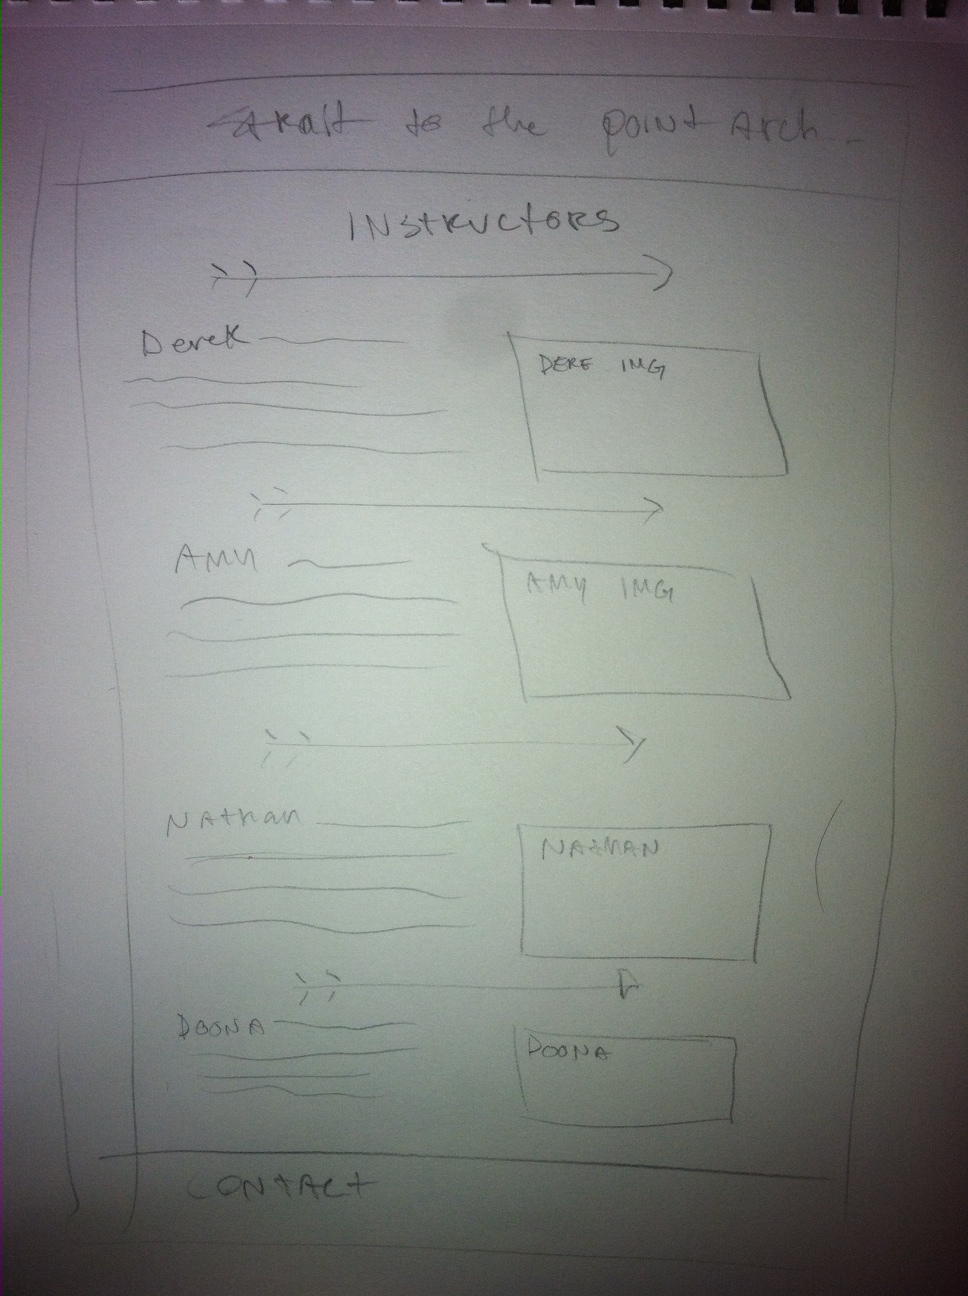 to the point Arch...
INSTRUCTORS
Derek
DERE IMG
AMY
AMY IMG
Nathan
NATHAN
DOONA
DOONA
CONTACT